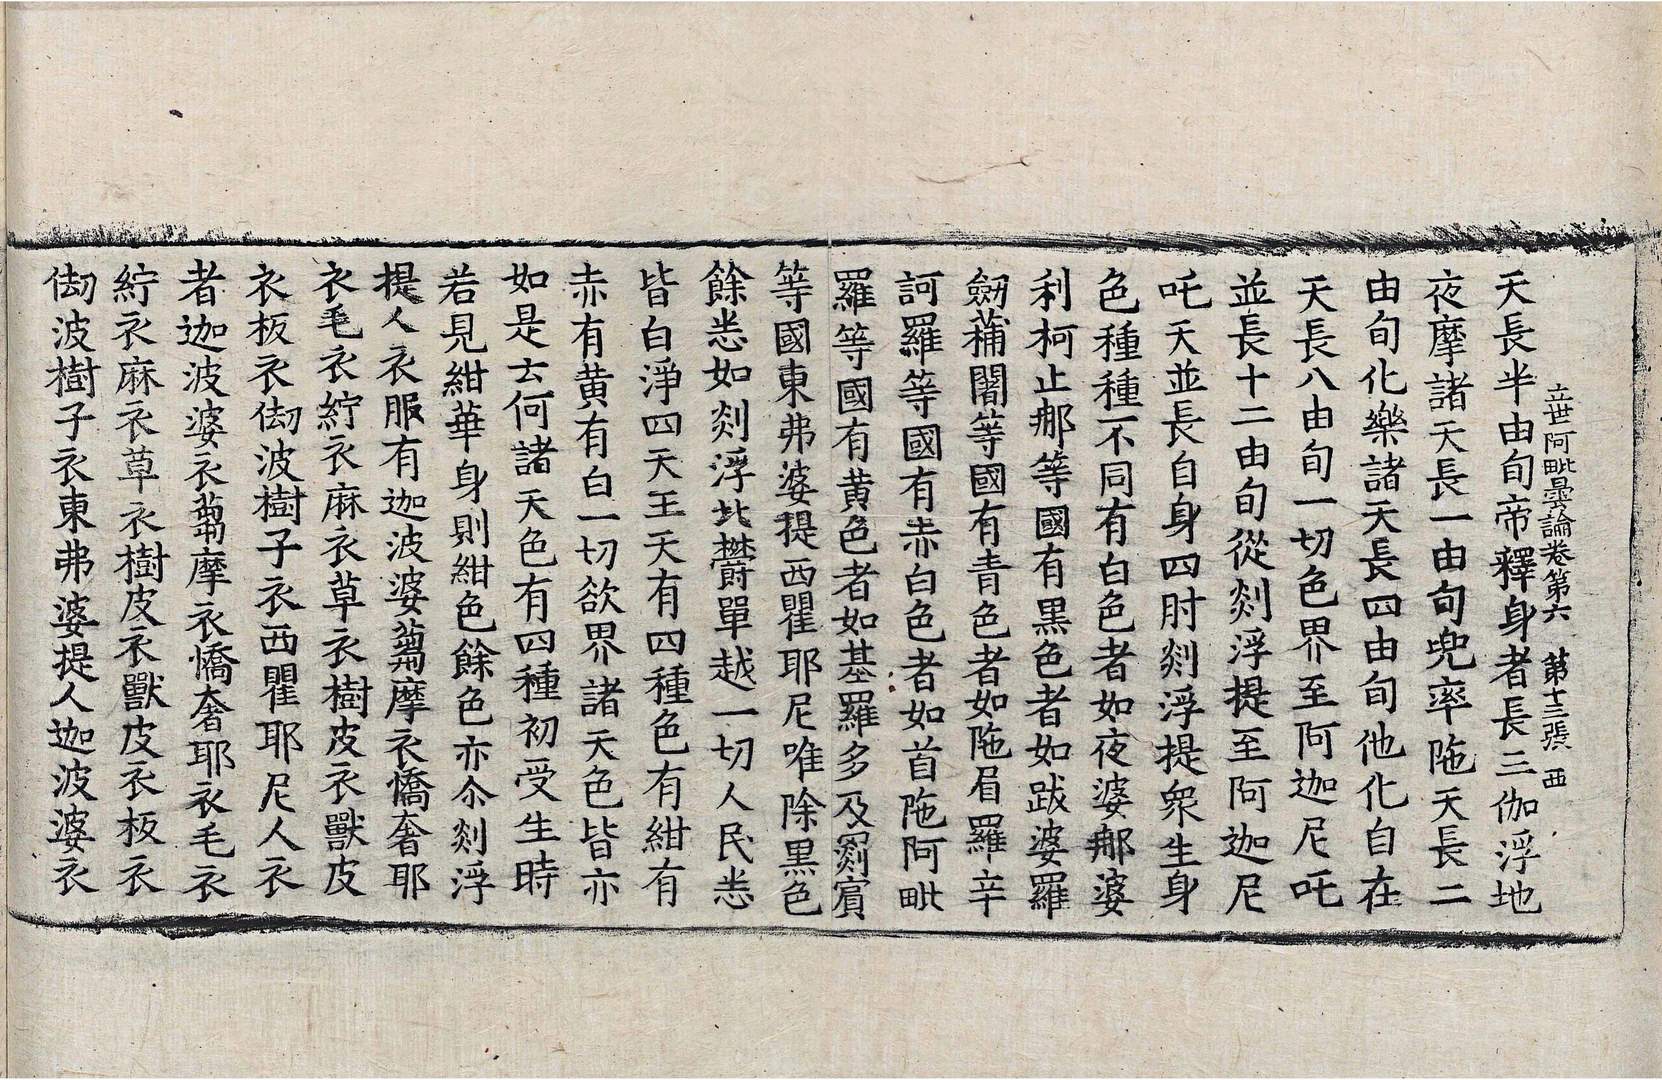 立世阿毗曇論卷第六 第十三張 西
天長半由旬帝釋身者長三伽浮地
夜摩諸天長一由旬兜率陁天長二
由旬化樂諸天長四由旬他化自在
天長八由旬一切色界至阿迦尼吒
並長十二由旬從剡浮提至阿迦尼
吒天並長自身四肘剡浮提衆生身
色種種不同有白色者如夜婆那婆
利柯止那等國有黑色者如跋婆羅
劒蒱闍等國有青色者如陁眉羅辛
訶羅等國有赤白色者如首陁阿毗
羅等國有黄色者如基羅多及罽賓
等國東弗婆提西瞿耶尼唯除黑色
餘悉如剡浮北欝單越一切人民悉
皆白淨四天王天有四種色有紺有
赤有黄有白一切欲界諸天色皆亦
如是云何諸天色有四種初受生時
若見紺華身則紺色餘色亦尒剡浮
提人衣服有迦波婆蒭摩衣憍奢耶
衣毛衣紵衣麻衣草衣樹皮衣獸皮
衣板衣刼波樹子衣西瞿耶尼人衣
者迦波婆衣蒭摩衣憍奢耶衣毛衣
紵衣麻衣草衣樹皮衣獸皮衣板衣
刼波樹子衣東弗婆提人迦波婆衣